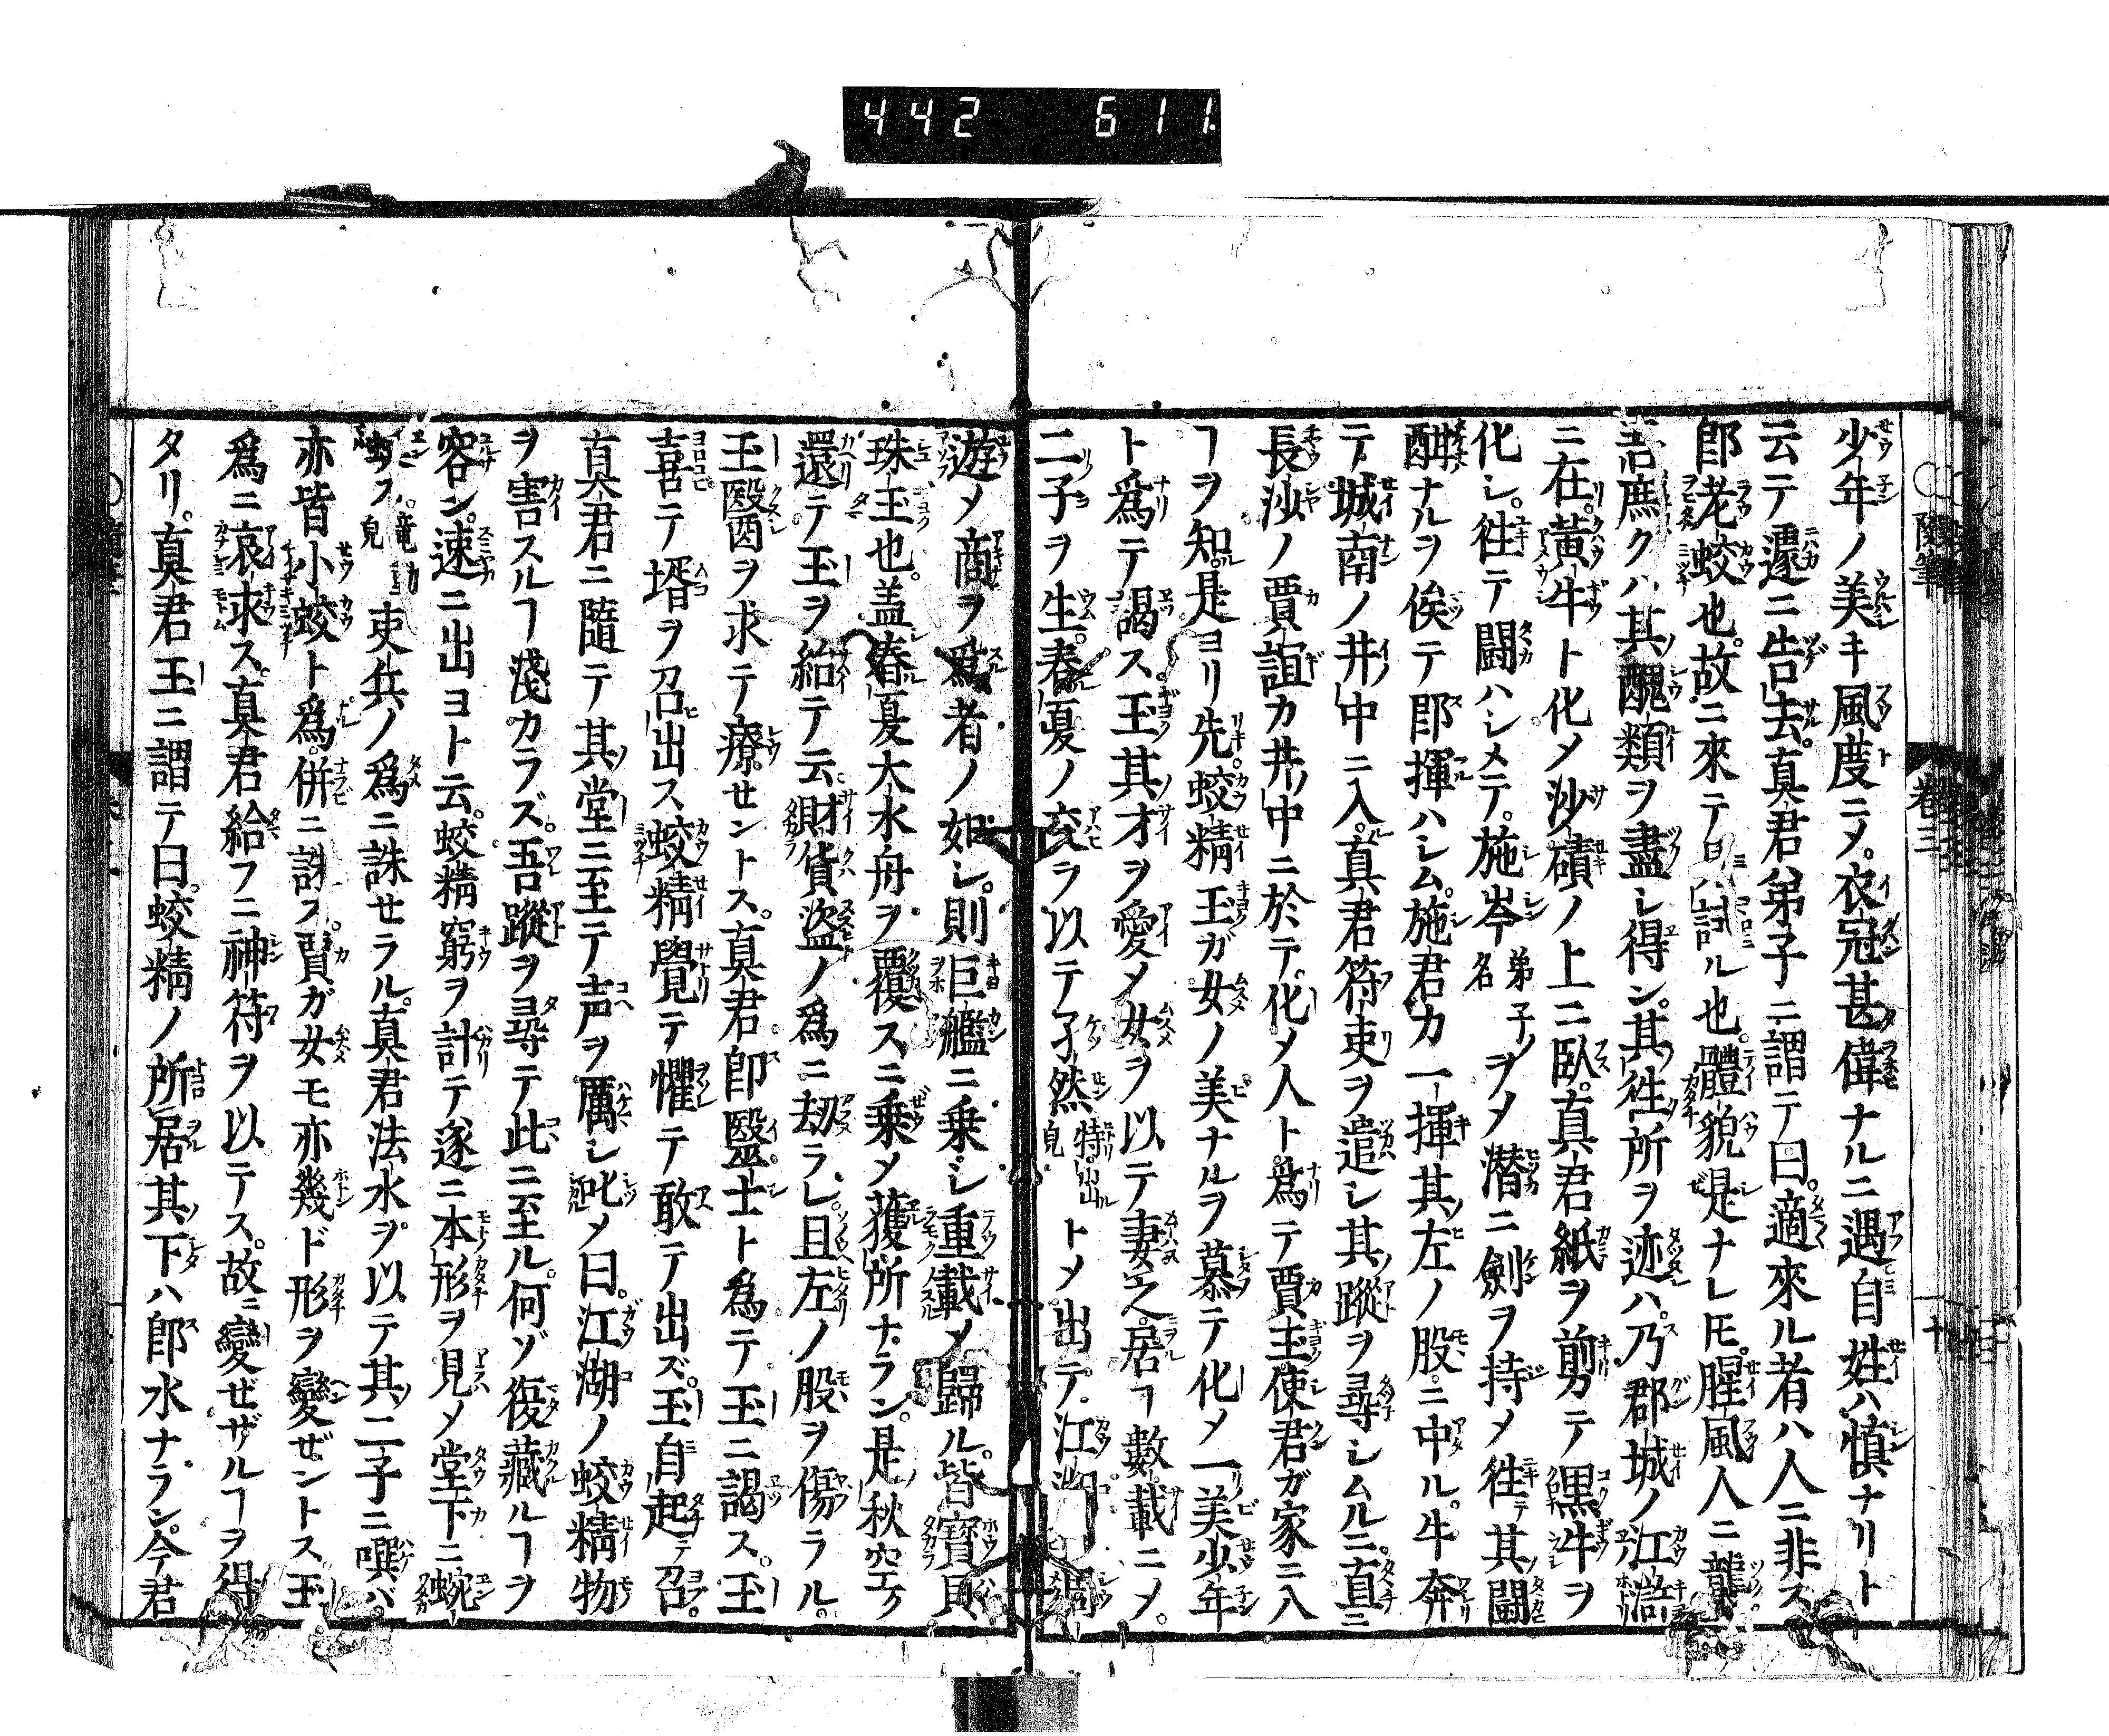 442 611
少年ノ美キ風度ニメ。衣冠甚偉ナルニ遇自姓ハ慎ナリト
云テ遽ニ告去。真君弟子ニ謂テ曰。適來ル者ハ人ニ非ス
即老蛟也。故ニ來テ試ル也。體貌是ナレモ。腥風人ニ襲
庶クハ其醜類ヲ盡シ得ン。其徃所ヲ迹ハ。乃郡城ノ江滸
ニ在。黄牛ト化メ沙磧ノ上ニ臥。真君紙ヲ剪テ黒牛ヲ
化シ。徃テ闘ハシメテ。施岑弟子ノ名ヲメ潜ニ劍ヲ持メ徃テ其闘
酣ナルヲ俟テ即揮ハシム。施君カ一揮其左ノ股ニ中ル。牛奔
テ城南ノ井中ニ入。真君符吏ヲ遣シ其蹤ヲ尋シムルニ直ニ
長沙ノ賈誼カ井中ニ於テ。化メ人ト為テ賈玉使君ガ家ニ入
ヿヲ知。是ヨリ先。蛟精玉ガ女ノ美ナルヲ慕テ化メ一美少年
ト為テ謁ス。玉其才ヲ愛メ女ヲ以テ妻之。居ヿ數載ニメ。
二子ヲ生。春夏ノ交ヲ以テ孑然特出ル皃トメ出テ江湖
遊メ商ヲ爲者ノ如シ。則巨艦ニ乗シ重載メ歸ル。皆寳貝
珠玉也。盖春夏大水舟ヲ覆スニ乗メ獲所ナラン。是秋空ク
還テ玉ヲ紿テ云。財貨盗ノ爲ニ劫ラレ且左ノ股ヲ傷ラル。
玉醫ヲ求テ療セントス。真君即醫士ト為テ玉ニ謁ス。玉
喜テ壻ヲ召出ス蛟精覺テ懼テ敢テ出ズ。玉自起テ召。
真君ニ隨テ其堂ニ至テ声ヲ厲シ叱メ曰。江湖ノ蛟精物
ヲ害スルヿ淺カラズ。吾蹤ヲ尋テ此ニ至ル。何ゾ復藏ルヿヲ
容ン。速ニ出ヨト云。蛟精窮ヲ計テ遂ニ本形ヲ見メ堂下ニ蜿
吏兵ノ爲ニ誅セラル。真君法水ヲ以テ其二子ニ噀バ。
亦皆小蛟ト為。併ニ誅ス。賈ガ女モ亦幾ド形ヲ變ゼントス玉
爲ニ哀求ス。真君給フニ神符ヲ以テス。故ニ變ゼザルヿヲ得
タリ。真君玉ニ謂テ曰。蛟精ノ所居其下ハ即水ナラン。今君
卷三